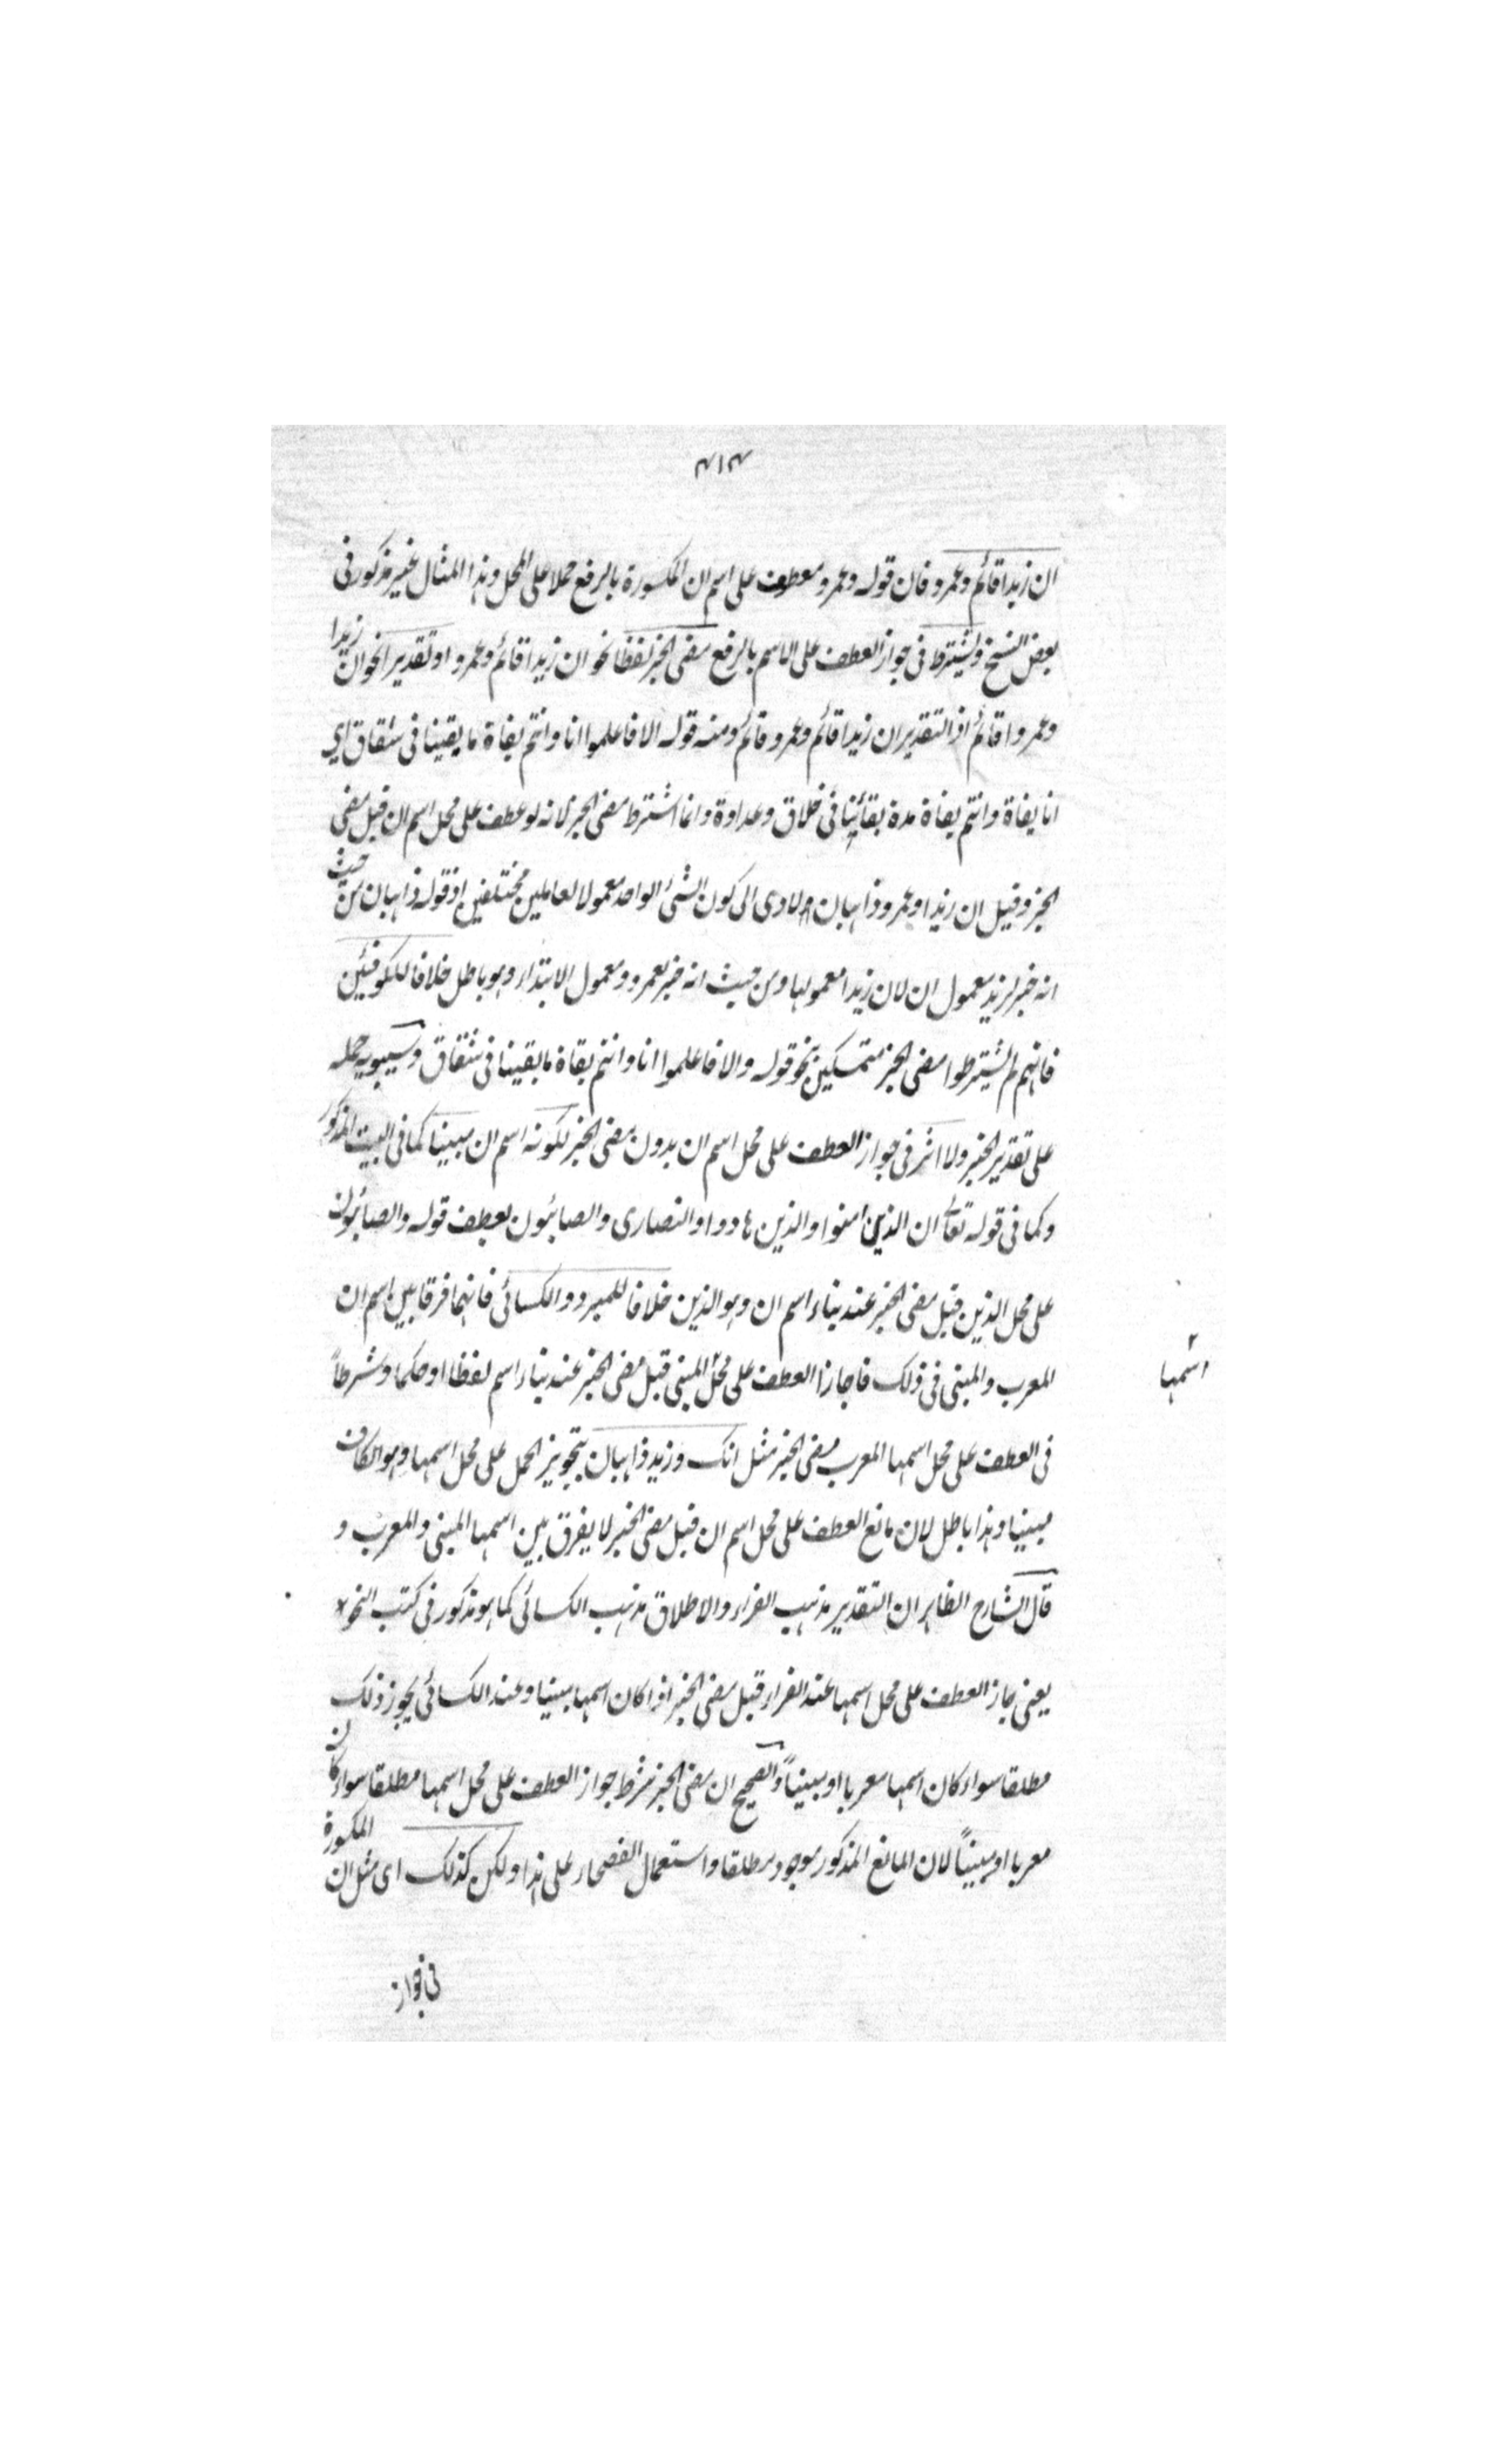 ٣١٣
ان زيدا قائم وعمرو فان قوله وعمرو معطوف على اسم ان المكسورة بالرفع حملا على المحل وهذا المثال غير مذكور فى
بعض النسخ ويشترط فى جواز العطف على الاسم بالرفع مضى الخبر لفظا نحو ان زيدا قائم وعمرو او تقديرا نحو ان زيدا
وعمروا قائم اذ التقدير ان زيدا قائم وعمرو قائم ومنه قوله الا فاعلموا انا وانتم بغاة ما بقينا فى شقاق اي
انا بغاة وانتم بغاة مدة بقائنا فى خلاق وعداوة وانما اشترط مضى الخبر لانه لو عطف على محل اسم ان قبل مضى
الخبر وقيل ان زيدا وعمرو ذاهبان لادى الى كون الشئ الواحد معمولا لعاملين مختلفين اذ قوله ذاهبان من حيث
انه خبر لزيد معمول ان لان زيدا معمولها ومن حيث انه خبر لعمرو ومعمول الابتداء وهو باطل خلافا للكوفيين
فانهم لم يشترطوا مضى الخبر متمسكين بنحو قوله والا فاعلموا انا وانتم بقاة ما بقينا فى شقاق وسيبويه حمله
على تقدير الخبر ولا اثر فى جواز العطف على محل اسم ان بدون مضى الخبر لكونه اسم ان مبينا كما فى البيت المذكور
وكما فى قوله تعالى ان الذين امنوا والذين هادوا والنصارى والصابئون بعطف قوله والصابئون
على محل الذين قبل مضى الخبر عند بناء اسم ان وهو الذين خلافا للمبرد والكسائى فانهما فرقا بين اسم ان
المعرب والمبنى فى ذلك فاجازا العطف على محل المبنى قبل مضى الخبر عند بناء اسم لفظا او حكما وشرطاً
اسمها
فى العطف على محل اسمها المعرب مضى الخبر مثل انك وزيد ذاهبان بتجويز الحمل على محل اسمها وهو الكاف
مبينا وهذا باطل لان مانع العطف على محل اسم ان قبل مضى الخبر لا يفرق بين اسمها المبنى والمعرب و
قال الشارح الظاهر ان التقدير مذهب الفراء والاطلاق مذهب الكسائى كما هو مذكور فى كتب النحو
يعنى جاز العطف على محل اسمها عند الفراء قبل مضى الخبر اذا كان اسمها مبينا وعند الكسائى يجوز ذلك
مطلقا سواء كان اسمها معربا او مبيناً والصحيح ان مضى الخبر شرط جواز العطف على محل اسمها مطلقا سواء كان
معربا او مبيناً لان المانع المذكور موجود مطلقا واستعمال الفصحاء على هذا ولكن كذلك اى مثل ان المكسورة
فى جواز